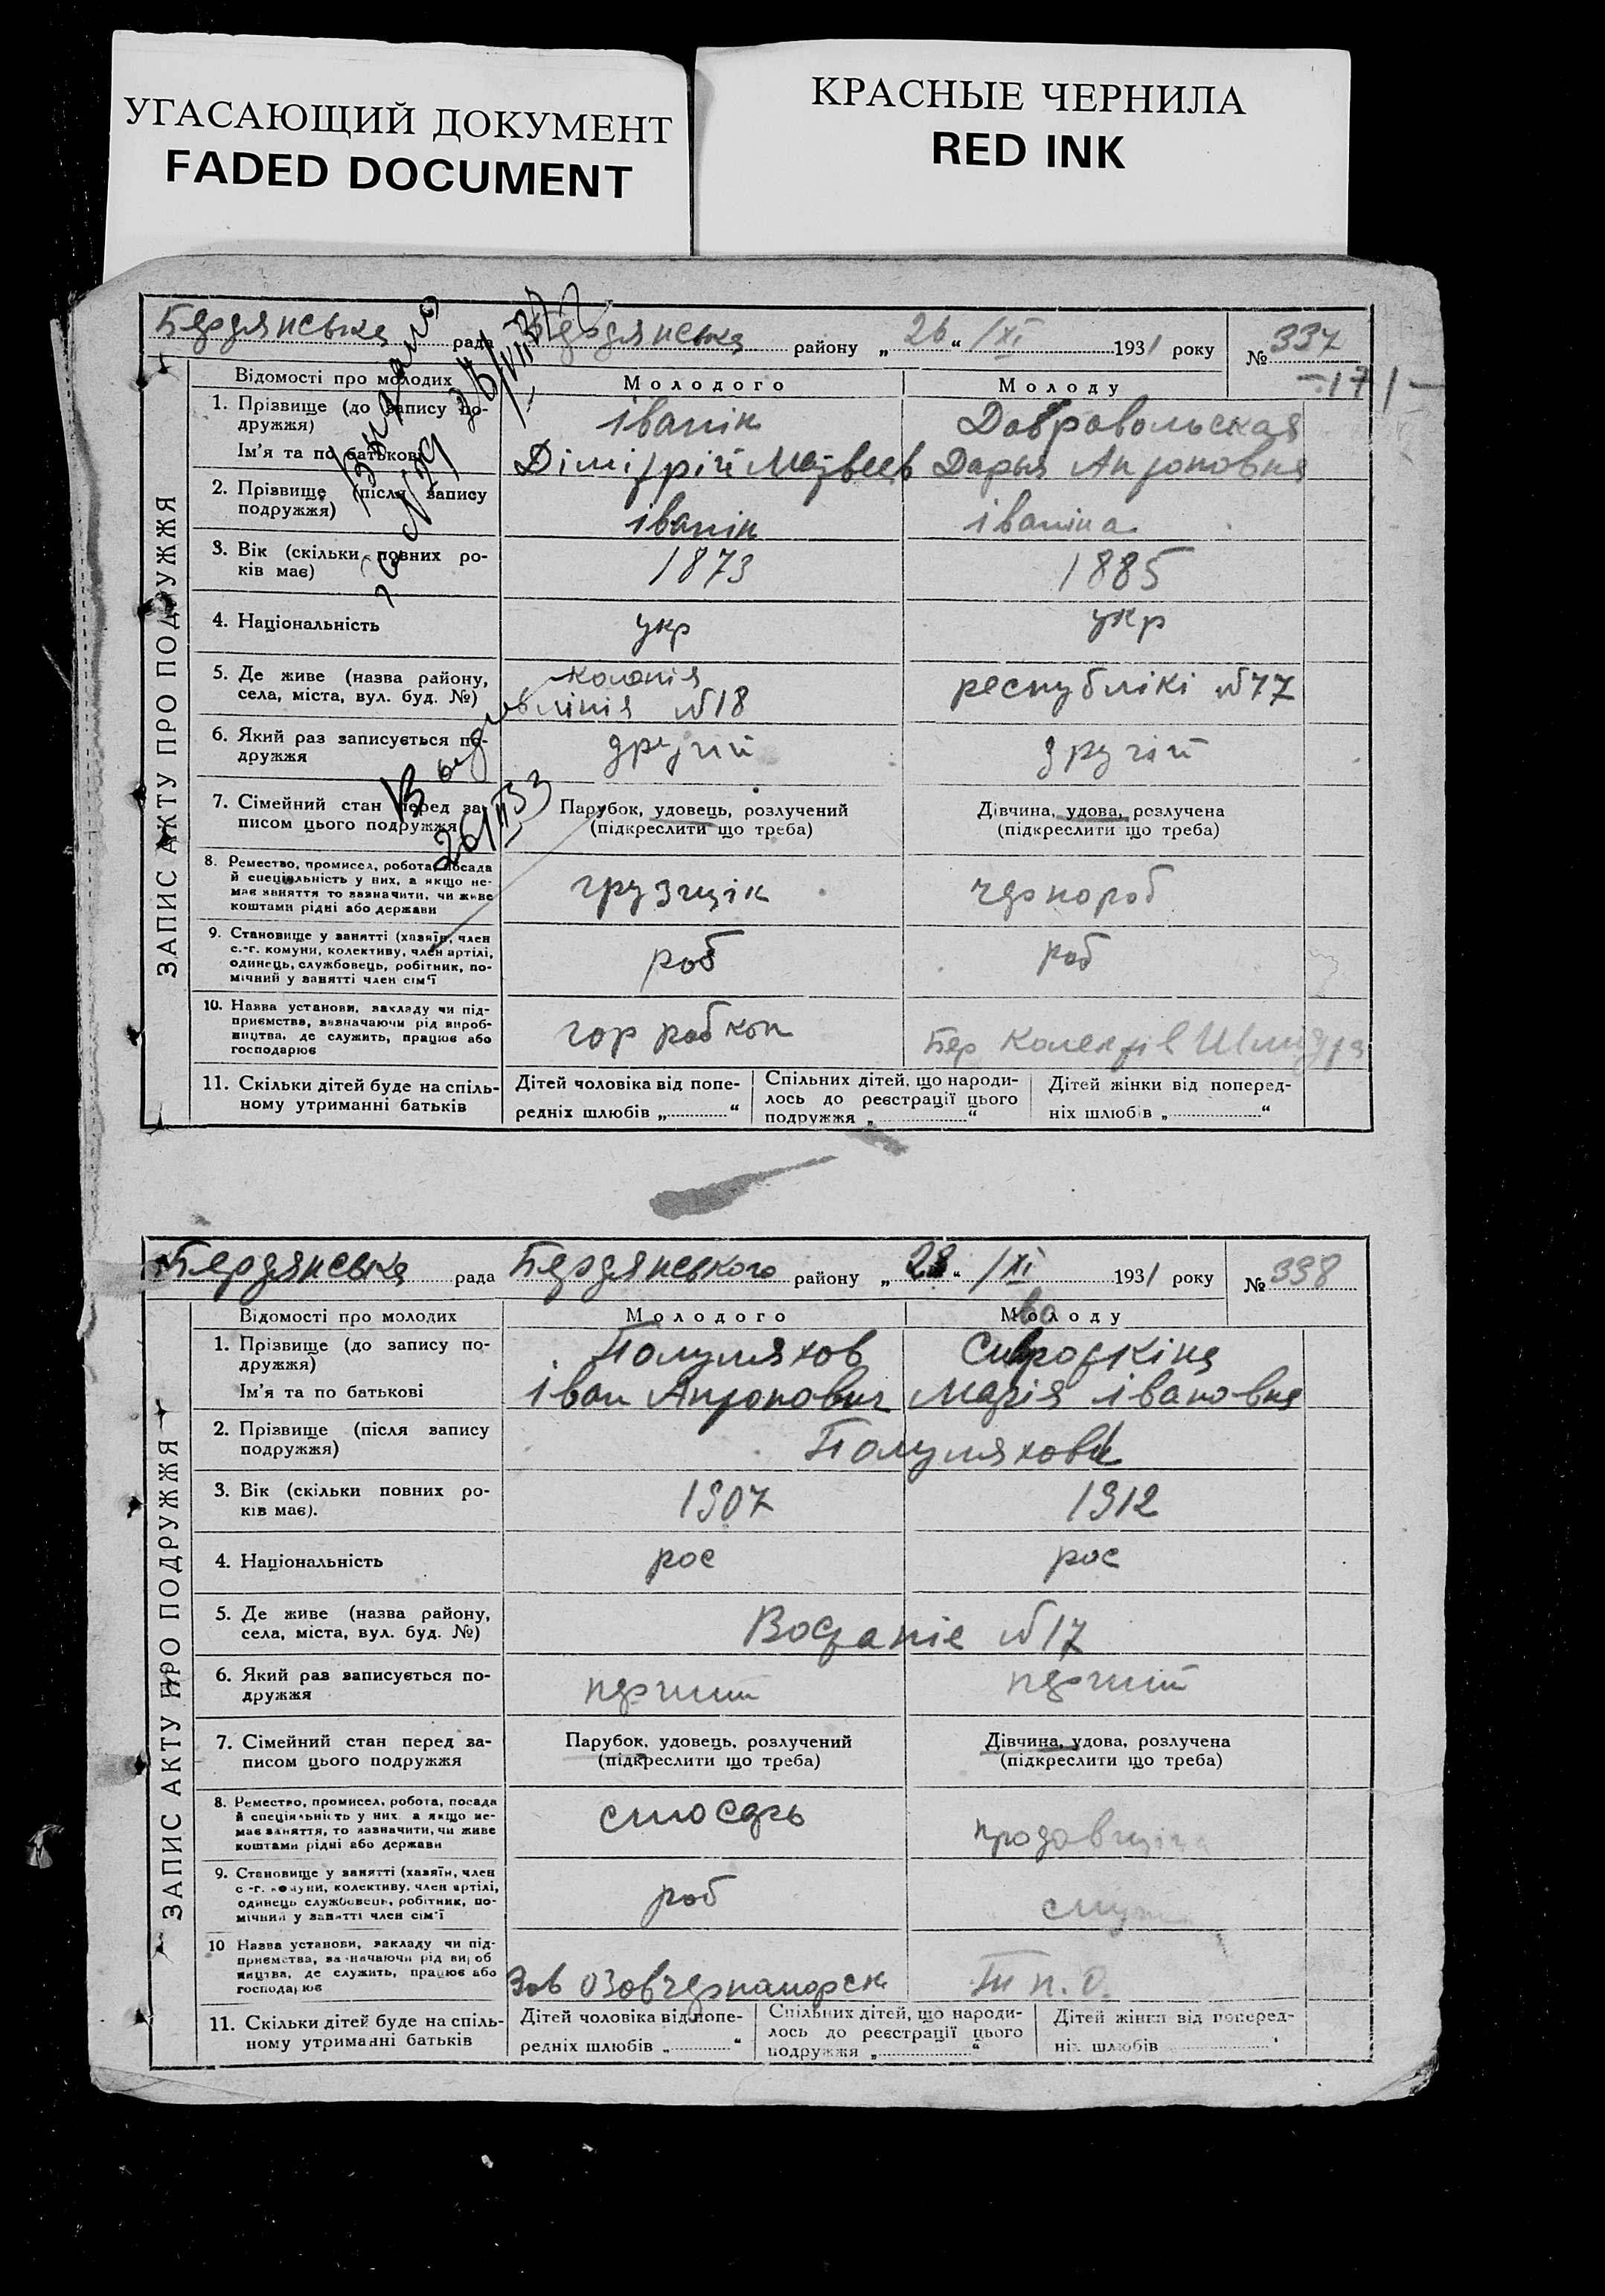 УГАСАЮЩИЙ ДОКУМЕНТ
FADED DOCUMENT
КРАСНЫЕ ЧЕРНИЛА
RED INK
Бердянська рада Бердянська району „26“ /XI 1931 року № 337
- 171 -
ЗАПИС АКТУ ПРО ПОДРУЖЖЯ
Відомості про молодих Молодого Молоду
1. Прізвище (до запису по-
дружжя) іванік Добровольская
Ім'я та по батькові Дімітрій Матвеев Дарья Антоновна
2. Прізвище (після запису
подружжя) іванік іваніна
3. Вік (скільки повних ро-
ків має) 1873 1885
4. Національність укр укр
5. Де живе (назва району,
села, міста, вул. буд. №)
колонія
лінія №18 республікі №77
6. Який раз записується по-
дружжя другий другий
7. Сімейний стан перед за-
писом цього подружжя
Парубок, удовець, розлучений
(підкреслити що треба)
Дівчина, удова, розлучена
(підкреслити що треба)
8. Ремество, промисел, робота, посада
й спеціяльність у них, а якщо не-
має заняття то зазначити, чи живе
коштами рідні або держави
грузщік чернороб
9. Становище у занятті (хазяїн, член
с.-г. комуни, колективу, член артілі,
одинець, службовець, робітник, по-
мічний у занятті член сім'ї
роб роб
10. Назва установи, закладу чи під-
приємства, зазначаючи рід вироб-
ництва, де служить, працює або
господарює
гор робкоп Бер
11. Скільки дітей буде на спіль-
ному утриманні батьків
Дітей чоловіка від попе-
редніх шлюбів „ “
Спільних дітей, що народи-
лось до реєстрації цього
подружжя „ “
Дітей жінки від поперед-
ніх шлюбів „ “
Видано
26/II 33
Бердянська рада Бердянського району „28“ /XI 1931 року № 338
ЗАПИС АКТУ ПРО ПОДРУЖЖЯ
Відомості про молодих Молодого Молоду
1. Прізвище (до запису по-
дружжя) Полуляхов
Ім'я та по батькові іван Антонович Марія івановна
2. Прізвище (після запису
подружжя) Полуляхови
3. Вік (скільки повних ро-
ків має). 1907 1912
4. Національність рос рос
5. Де живе (назва району,
села, міста, вул. буд. №) Востаніе №17
6. Який раз записується по-
дружжя перший перший
7. Сімейний стан перед за-
писом цього подружжя
Парубок, удовець, розлучений
(підкреслити що треба)
Дівчина, удова, розлучена
(підкреслити що треба)
8. Ремество, промисел, робота, посада
й спеціяльність у них а якщо не-
має заняття, то зазначити, чи живе
коштами рідні або держави
слюсарь продавщіца
9. Становище у занятті (хазяїн, член
с-г. комуни, колективу, член артілі,
одинець службовець, робітник, по-
мічний у занятті член сім'ї
роб
10 Назва установи, закладу чи під-
приємства, зазначаючи рід вироб
ництва, де служить, працює або
господарює
Зав Т п. О.
11. Скільки дітей буде на спіль-
ному утриманні батьків
Дітей чоловіка від попе-
редніх шлюбів „ “
Спільних дітей, що народи-
лось до реєстрації цього
подружжя „ “
Дітей жінки від поперед-
ніх шлюбів